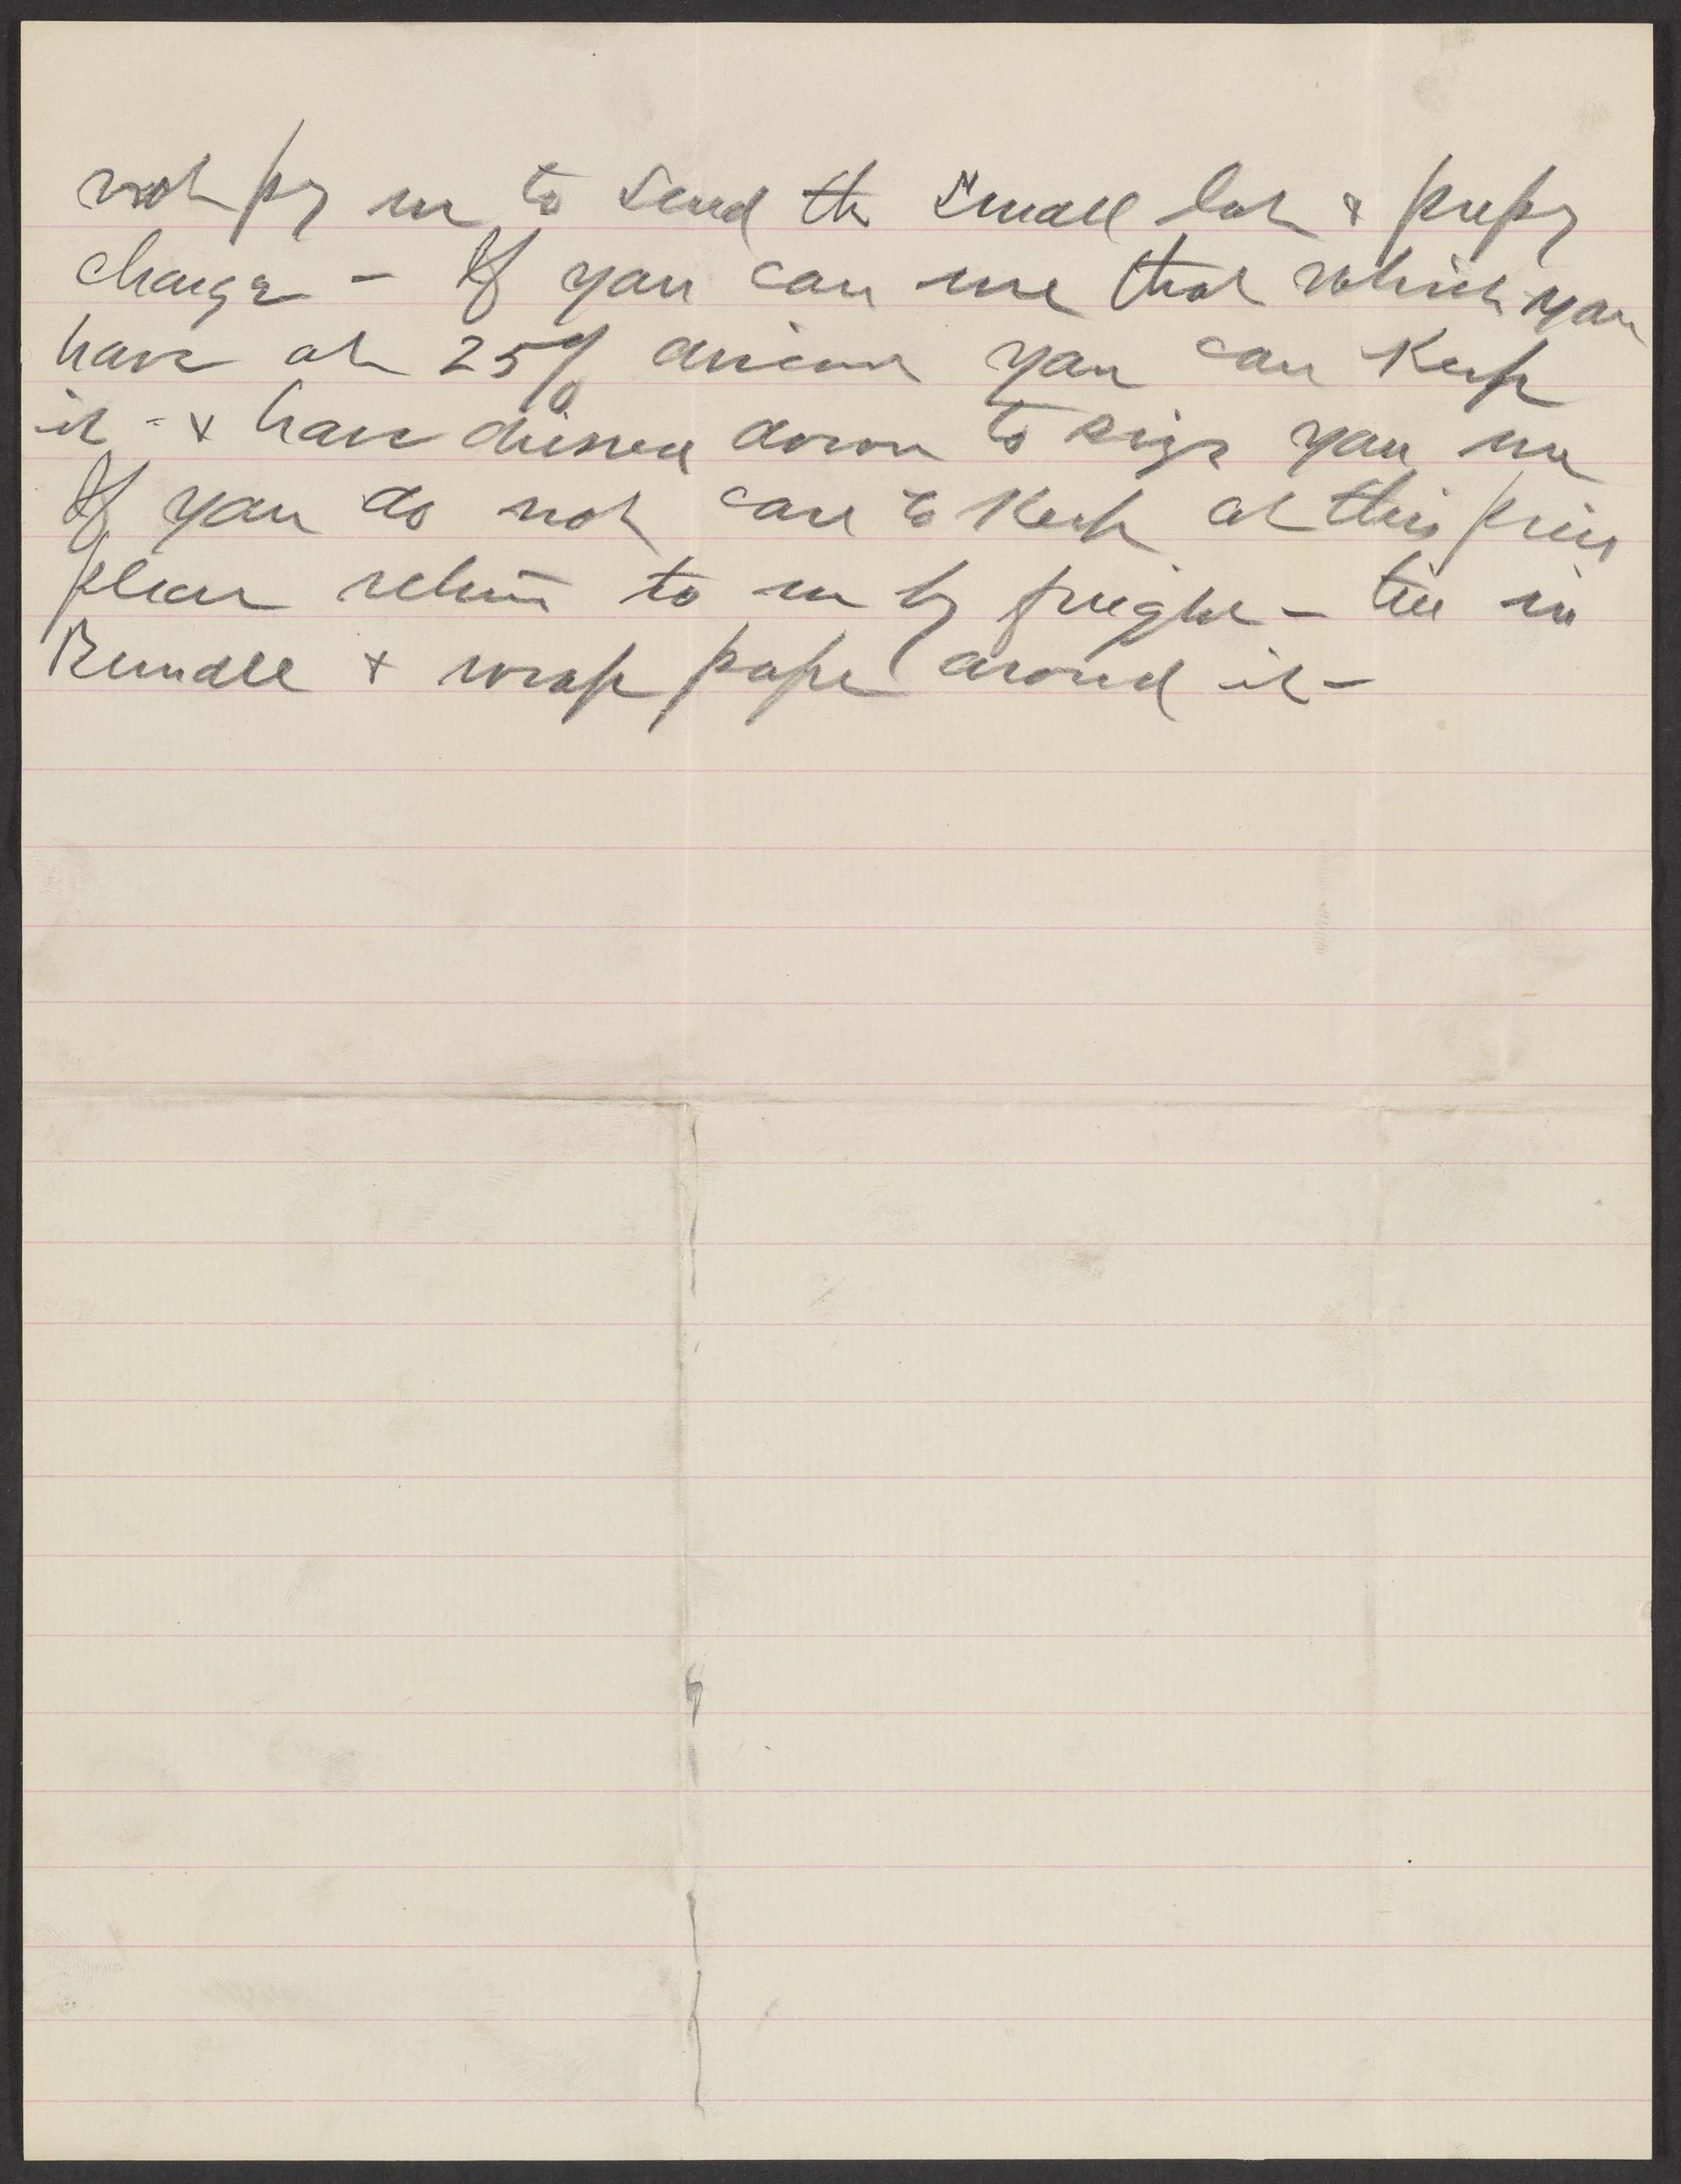 not pay me to send the small lot & prepay
charge - If you can use that which you
have at 25% discount you can keep
it - & have dressed down to size you use
If you do not care to keep at this price
please return to me by freight - tie in
Bundle & wrap paper around it -